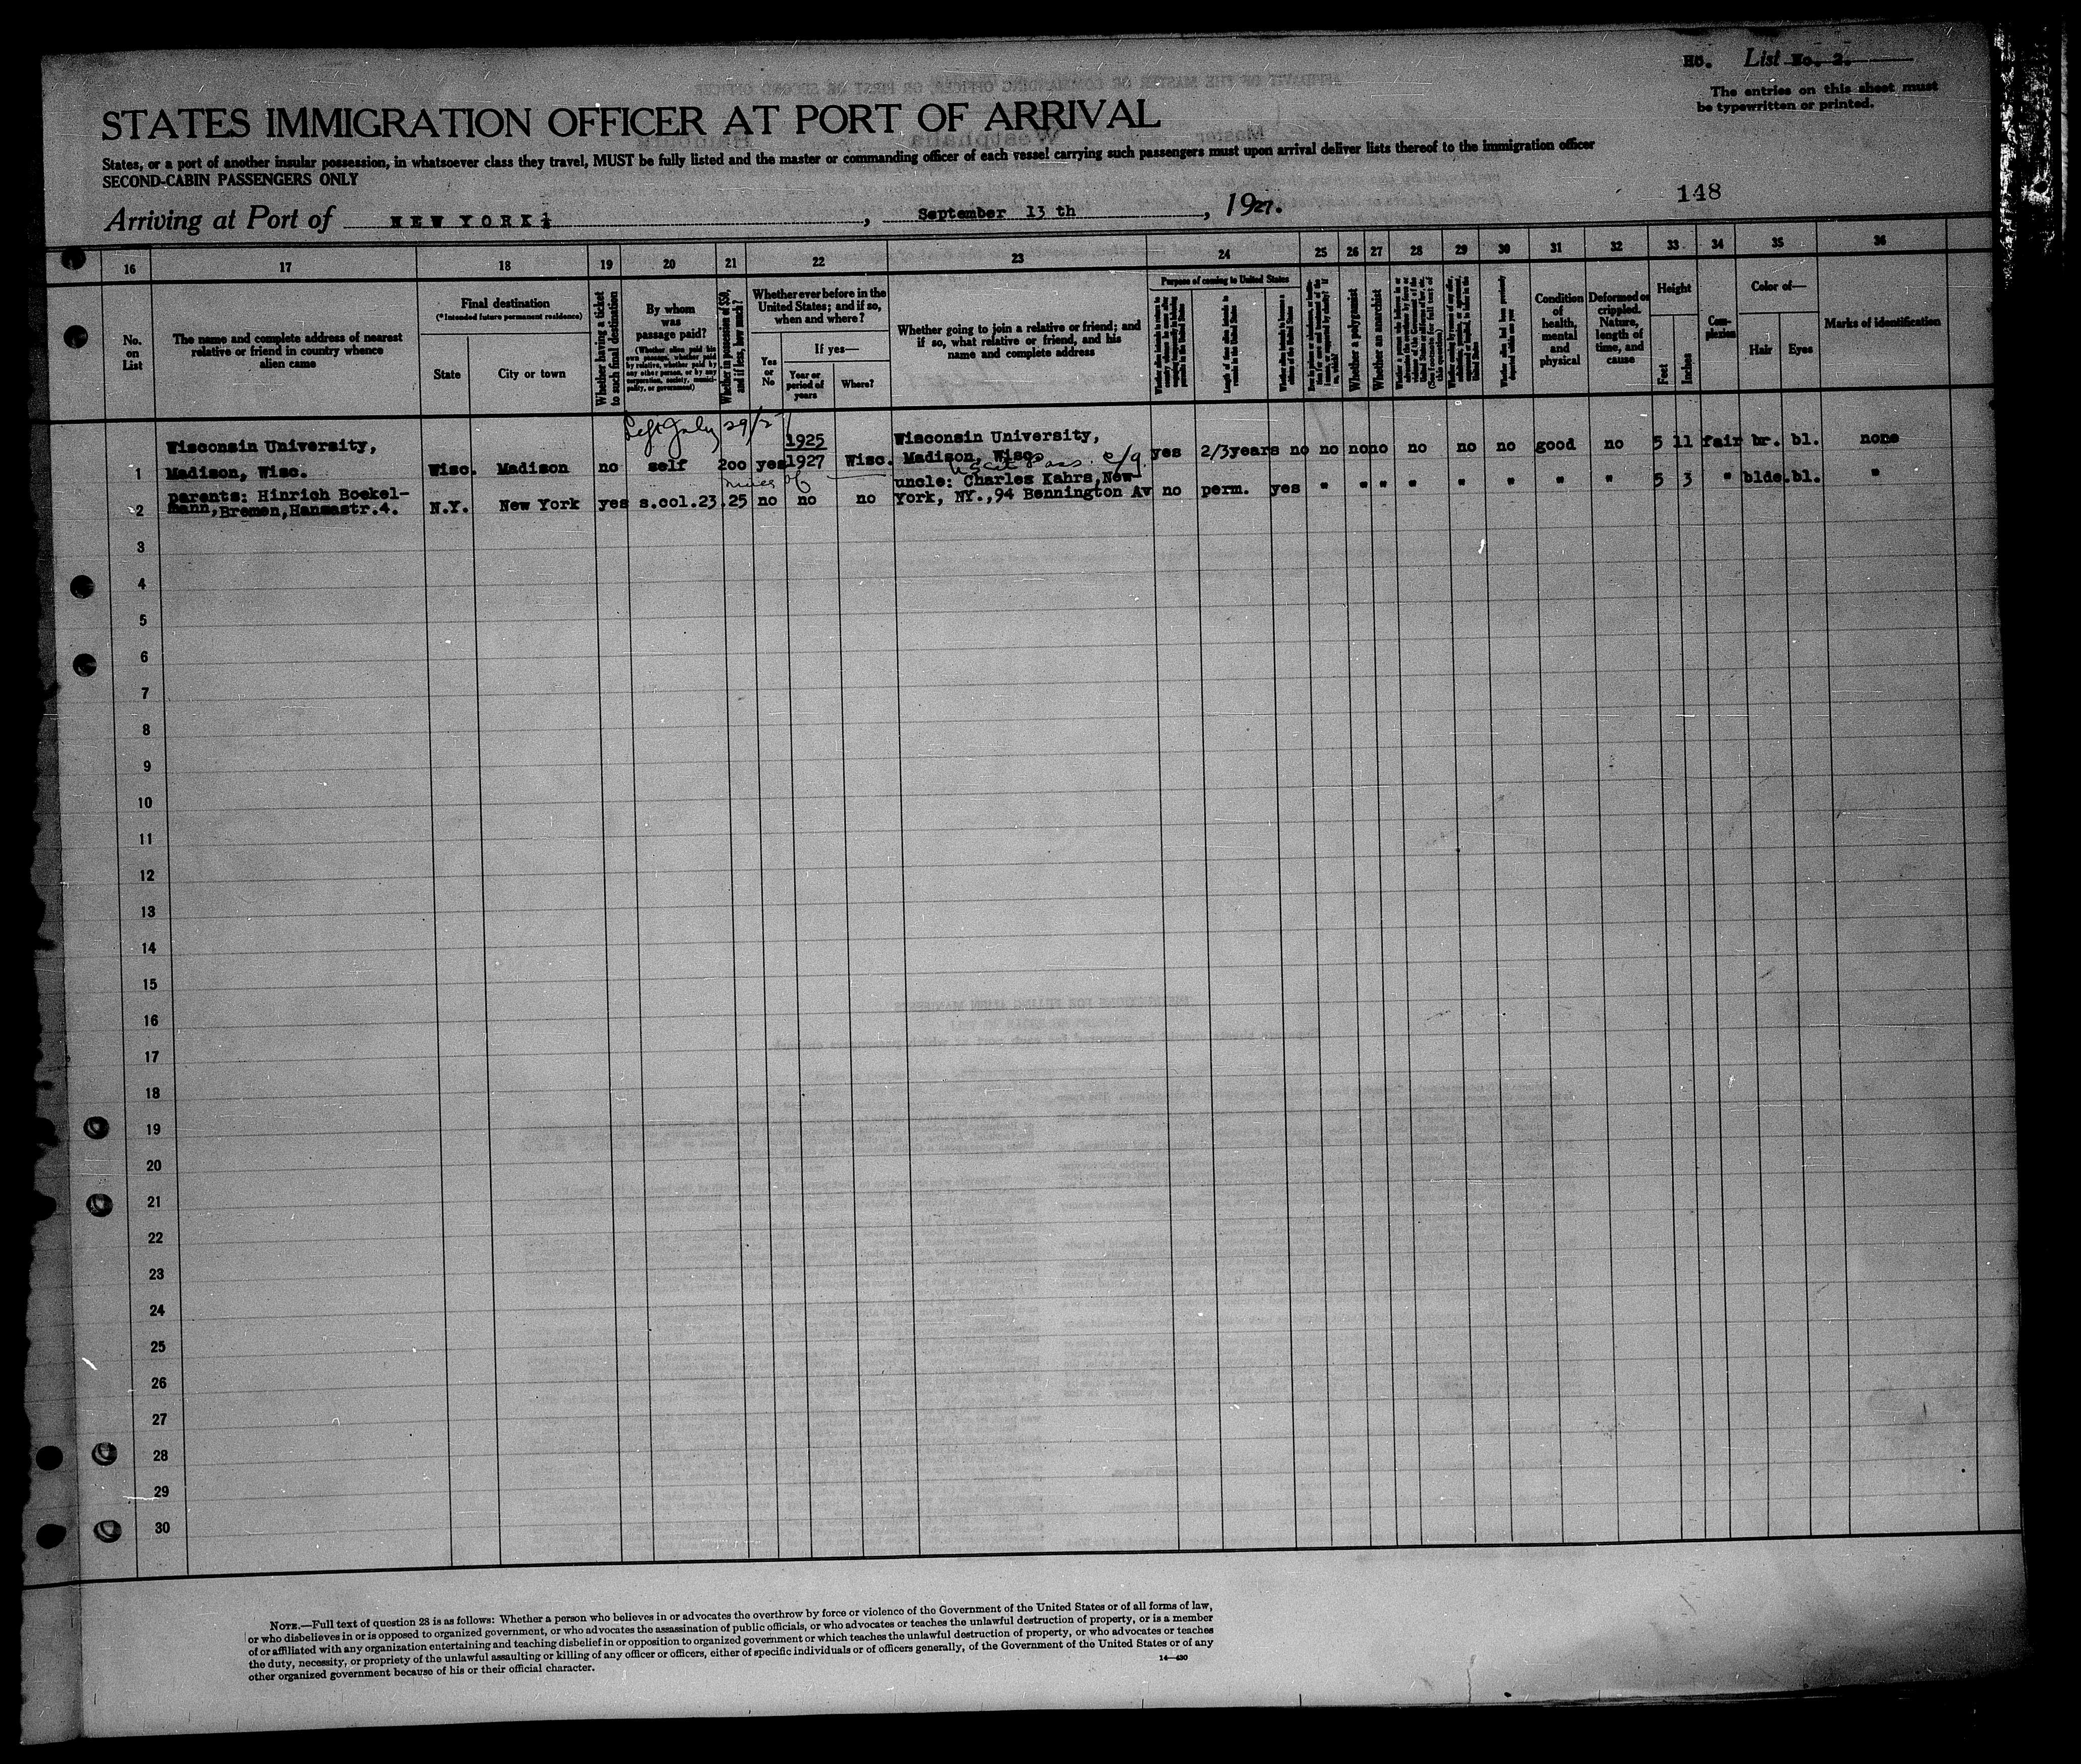 No. List No. 2.
The entries on this sheet must
be typewritten or printed.
STATES IMMIGRATION OFFICER AT PORT OF ARRIVAL
States, or a port of another insular possession, in whatsoever class they travel, MUST be fully listed and the master or commanding officer of each vessel carrying such passengers must upon arrival deliver lists thereof to the immigration officer
SECOND-CABIN PASSENGERS ONLY
148
Arriving at Port of NEW YORK, September 13 th, 1927.
16 17 18 19 20 21 22 23 24 25 26 27 28 29 30 31 32 33 34 35 36
No.
on
List
The name and complete address of nearest
relative or friend in country whence
alien came
Final destination
(*Intended future permanent residence)
State
City or town
Whether having a ticket
to such final destination
By whom
was
passage paid?
(Whether alien paid his
own passage, whether paid
by relative, whether paid by
any other person, or by any
corporation, society, munici-
pality, or government)
Whether in possession of $50,
and if less, how much?
Whether ever before in the
United States; and if so,
when and where?
Yes
or
No
If yes—
Year or
period of
years
Where?
Whether going to join a relative or friend; and
if so, what relative or friend, and his
name and complete address
Purpose of coming to United States
Length of time alien intends to
remain in the United States
Whether alien intends to become a
citizen of the United States
Whether a polygamist
Whether an anarchist
Whether alien had been previously
deported within one year
Condition
of
health,
mental
and
physical
Deformed or
crippled.
Nature,
length of
time, and
cause
Height
Feet
Inches
Com-
plexion
Color of—
Hair
Eyes
Marks of identification
Left July 29/27
Wisconsin University, 1925 Wisconsin University,
1 Madison, Wisc. Wisc. Madison no self 200 yes 1927 Wisc. Madison, Wisc. yes 2/3years no no no no no no no good no 5 11 fair br. bl. none
parents: Hinrich Boekel- uncle: Charles Kahrs, New-
2 mann, Bremen, Hansastr.4. N.Y. New York yes s.col.23 .25 no no no York, NY., 94 Bennington Av no perm. yes " " " " " " " " 5 3 " blde. bl. "
3
4
5
6
7
8
9
10
11
12
13
14
15
16
17
18
19
20
21
22
23
24
25
26
27
28
29
30
NOTE.—Full text of question 28 is as follows: Whether a person who believes in or advocates the overthrow by force or violence of the Government of the United States or of all forms of law,
or who disbelieves in or is opposed to organized government, or who advocates the assassination of public officials, or who advocates or teaches the unlawful destruction of property, or is a member
of or affiliated with any organization entertaining and teaching disbelief in or opposition to organized government or which teaches the unlawful destruction of property, or who advocates or teaches
the duty, necessity, or propriety of the unlawful assaulting or killing of any officer or officers, either of specific individuals or of officers generally, of the Government of the United States or of any
other organized government because of his or their official character.
14—430